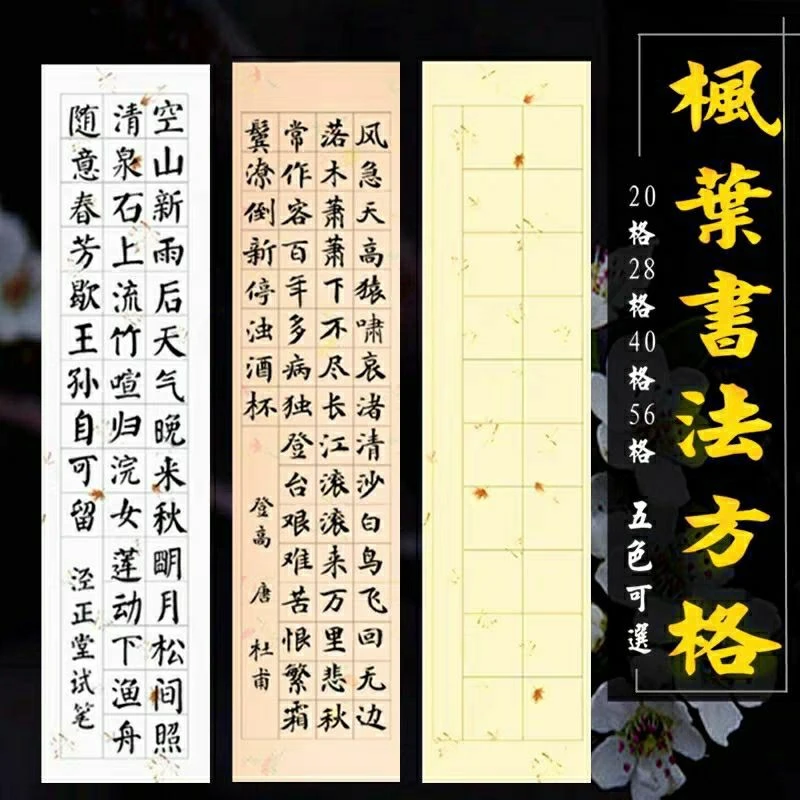 楓葉書法方格
20格28格40格56格 五色可選
风急天高猿啸哀渚清沙白鸟飞回无边
落木萧萧下不尽长江滚滚来万里悲秋
常作客百年多病独登台艰难苦恨繁霜
鬓潦倒新停浊酒杯
登高 唐 杜甫
空山新雨后天气晚来秋明月松间照
清泉石上流竹喧归浣女莲动下渔舟
随意春芳歇王孙自可留
泾正堂试笔